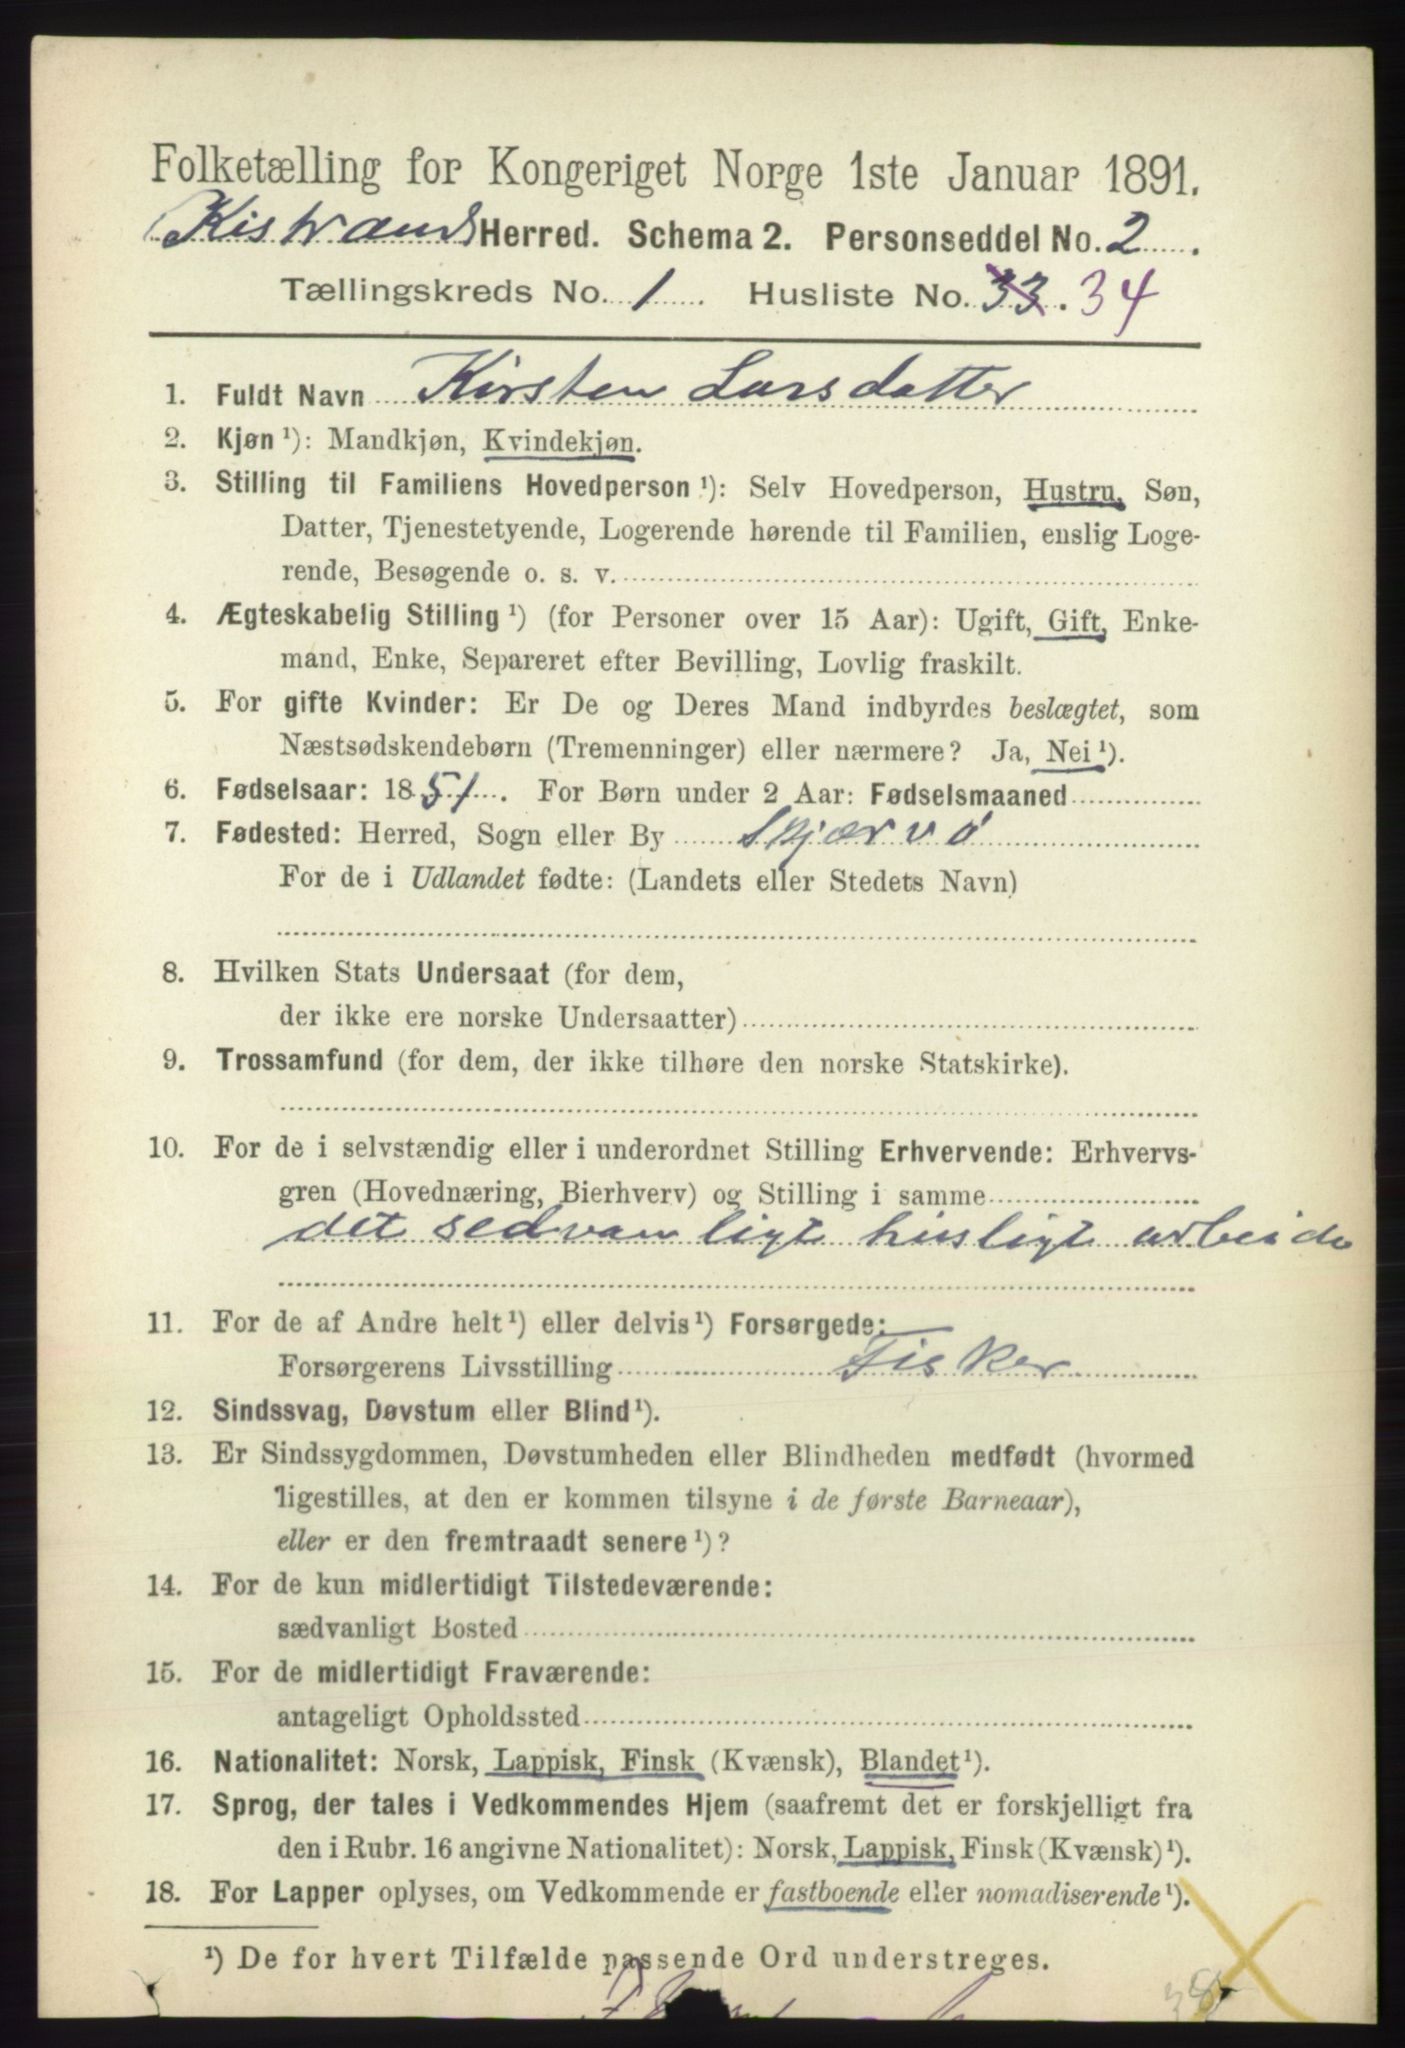 Folketælling for Kongeriget Norge 1ste Januar 1891.
Kistrand Herred. Schema 2. Personseddel No. 2.
Tællingskreds No. 1 Husliste No. 33. 34
1. Fuldt Navn Kirsten Larsdatter
2. Kjøn ¹): Mandkjøn, Kvindekjøn.
3. Stilling til Familiens Hovedperson ¹): Selv Hovedperson, Hustru, Søn,
Datter, Tjenestetyende, Logerende hørende til Familien, enslig Loge-
rende, Besøgende o. s. v.
4. Ægteskabelig Stilling ¹) (for Personer over 15 Aar): Ugift, Gift, Enke-
mand, Enke, Separeret efter Bevilling, Lovlig fraskilt.
5. For gifte Kvinder: Er De og Deres Mand indbyrdes beslægtet, som
Næstsødskendebørn (Tremenninger) eller nærmere? Ja, Nei ¹).
6. Fødselsaar: 1851. For Børn under 2 Aar: Fødselsmaaned
7. Fødested: Herred, Sogn eller By Skjærvø
For de i Udlandet fødte: (Landets eller Stedets Navn)
8. Hvilken Stats Undersaat (for dem,
der ikke ere norske Undersaatter)
9. Trossamfund (for dem, der ikke tilhøre den norske Statskirke).
10. For de i selvstændig eller i underordnet Stilling Erhvervende: Erhvervs-
gren (Hovednæring, Bierhverv) og Stilling i samme
det sedvanligt husligt arbeide
11. For de af Andre helt ¹) eller delvis ¹) Forsørgede:
Forsørgerens Livsstilling Fisker
12. Sindssvag, Døvstum eller Blind ¹).
13. Er Sindssygdommen, Døvstumheden eller Blindheden medfødt (hvormed
ligestilles, at den er kommen tilsyne i de første Barneaar),
eller er den fremtraadt senere ¹)?
14. For de kun midlertidigt Tilstedeværende:
sædvanligt Bosted
15. For de midlertidigt Fraværende:
antageligt Opholdssted
16. Nationalitet: Norsk, Lappisk, Finsk (Kvænsk), Blandet ¹).
17. Sprog, der tales i Vedkommendes Hjem (saafremt det er forskjelligt fra
den i Rubr. 16 angivne Nationalitet): Norsk, Lappisk, Finsk (Kvænsk) ¹).
18. For Lapper oplyses, om Vedkommende er fastboende eller nomadiserende ¹).
¹) De for hvert Tilfælde passende Ord understreges.